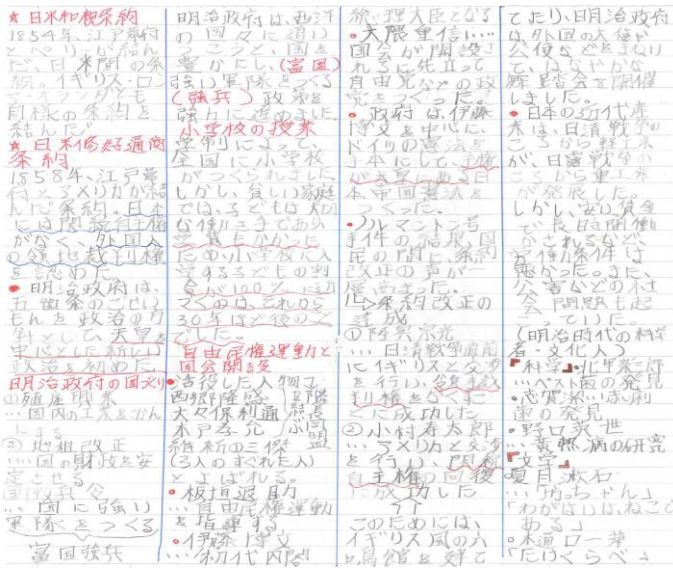 ★日米和親条約
1854年、江戸幕府
とペリーが結ん
だ、日米間の条
約。イギリス・ロシ
ア・オランダとも
同様の条約を
結んだ。
★日米修好通商
条約
1858年、江戸幕
府とアメリカが結
んだ条約。日本
には関税自主権
がなく、外国人
の領事裁判権
を認めた。
●明治政府は、
五箇条のごせい
もんを政治の方
針として、天皇を
中心とした新しい
政治を初めた。
明治政府の国づくり
①殖産興業
…国内の工業をかん
にする
②地租改正
…国の財政を安
定させる
③徴兵令
…国に強い
軍隊をつくる
富国強兵
明治政府は、西洋
の国々に追い
つこうと、国を
豊かにし、(富国)
強い軍隊をつくる
(強兵)政策を
強力に進めました。
小学校の授業
学制によって、
全国に小学校
がつくられました
しかし、貧しい家庭
では、子どもは大切
な働き手であり
学費が高かった
ため、小学校に入
学する子どもの割
合が100%に近
づくのは、これから
30年ほど後のこと
でした。
自由民権運動と
国会開設
●活役した人物
西郷隆盛
大久保利通
木戸孝允
維新の三傑
(3人のすぐれた人)
とよばれる。
●板垣退助
…自由民権運動
を指導する
●伊藤博文
…初代内閣
総理大臣となる
●大隈重信…
国会が開設さ
れるに先立って
自由党などの政
党をつくった。
●政府は、伊藤
博文を中心に、
ドイツの憲法を
手本にして、主権
が天皇にある大日
本帝国憲法を
つくった。
●ノルマントン号
事件の結果、国
民の間に条約
改正の声が
高まった。
↳条約改正の
達成
①陸奥宗光
…日清戦争直前
にイギリスと交渉
を行い、領事裁
判権をなくす
ことに成功した
②小村寿太郎
…アメリカと交渉
を行い、関税
自主権の回復
に成功した
このためには、
イギリス風の六
鳴館を建て
てたり、明治政府
は外国の大使や
公使などをまねい
て、はなやかな
舞踏会を開催
しました。
●日本の近代産
業は、日清戦争の
ころから軽工業
が、日露戦争の
ころから重工業
が発展した。
しかし、安い賃金
で、長時間働
かされるなど
労働条件は
悪かった。また、
公害などの社
会問題も起
っていた。
(明治時代の科学
者・文化人)
『科学』・北里柴三郎
…ペスト菌の発見
・志賀潔…赤痢
菌の発見
・野口英世
…黄熱病の研究
『文学』
夏目漱石
…「坊っちゃん」
「わがはいは、ねこで
ある」
・樋口一葉
「たけくらべ」